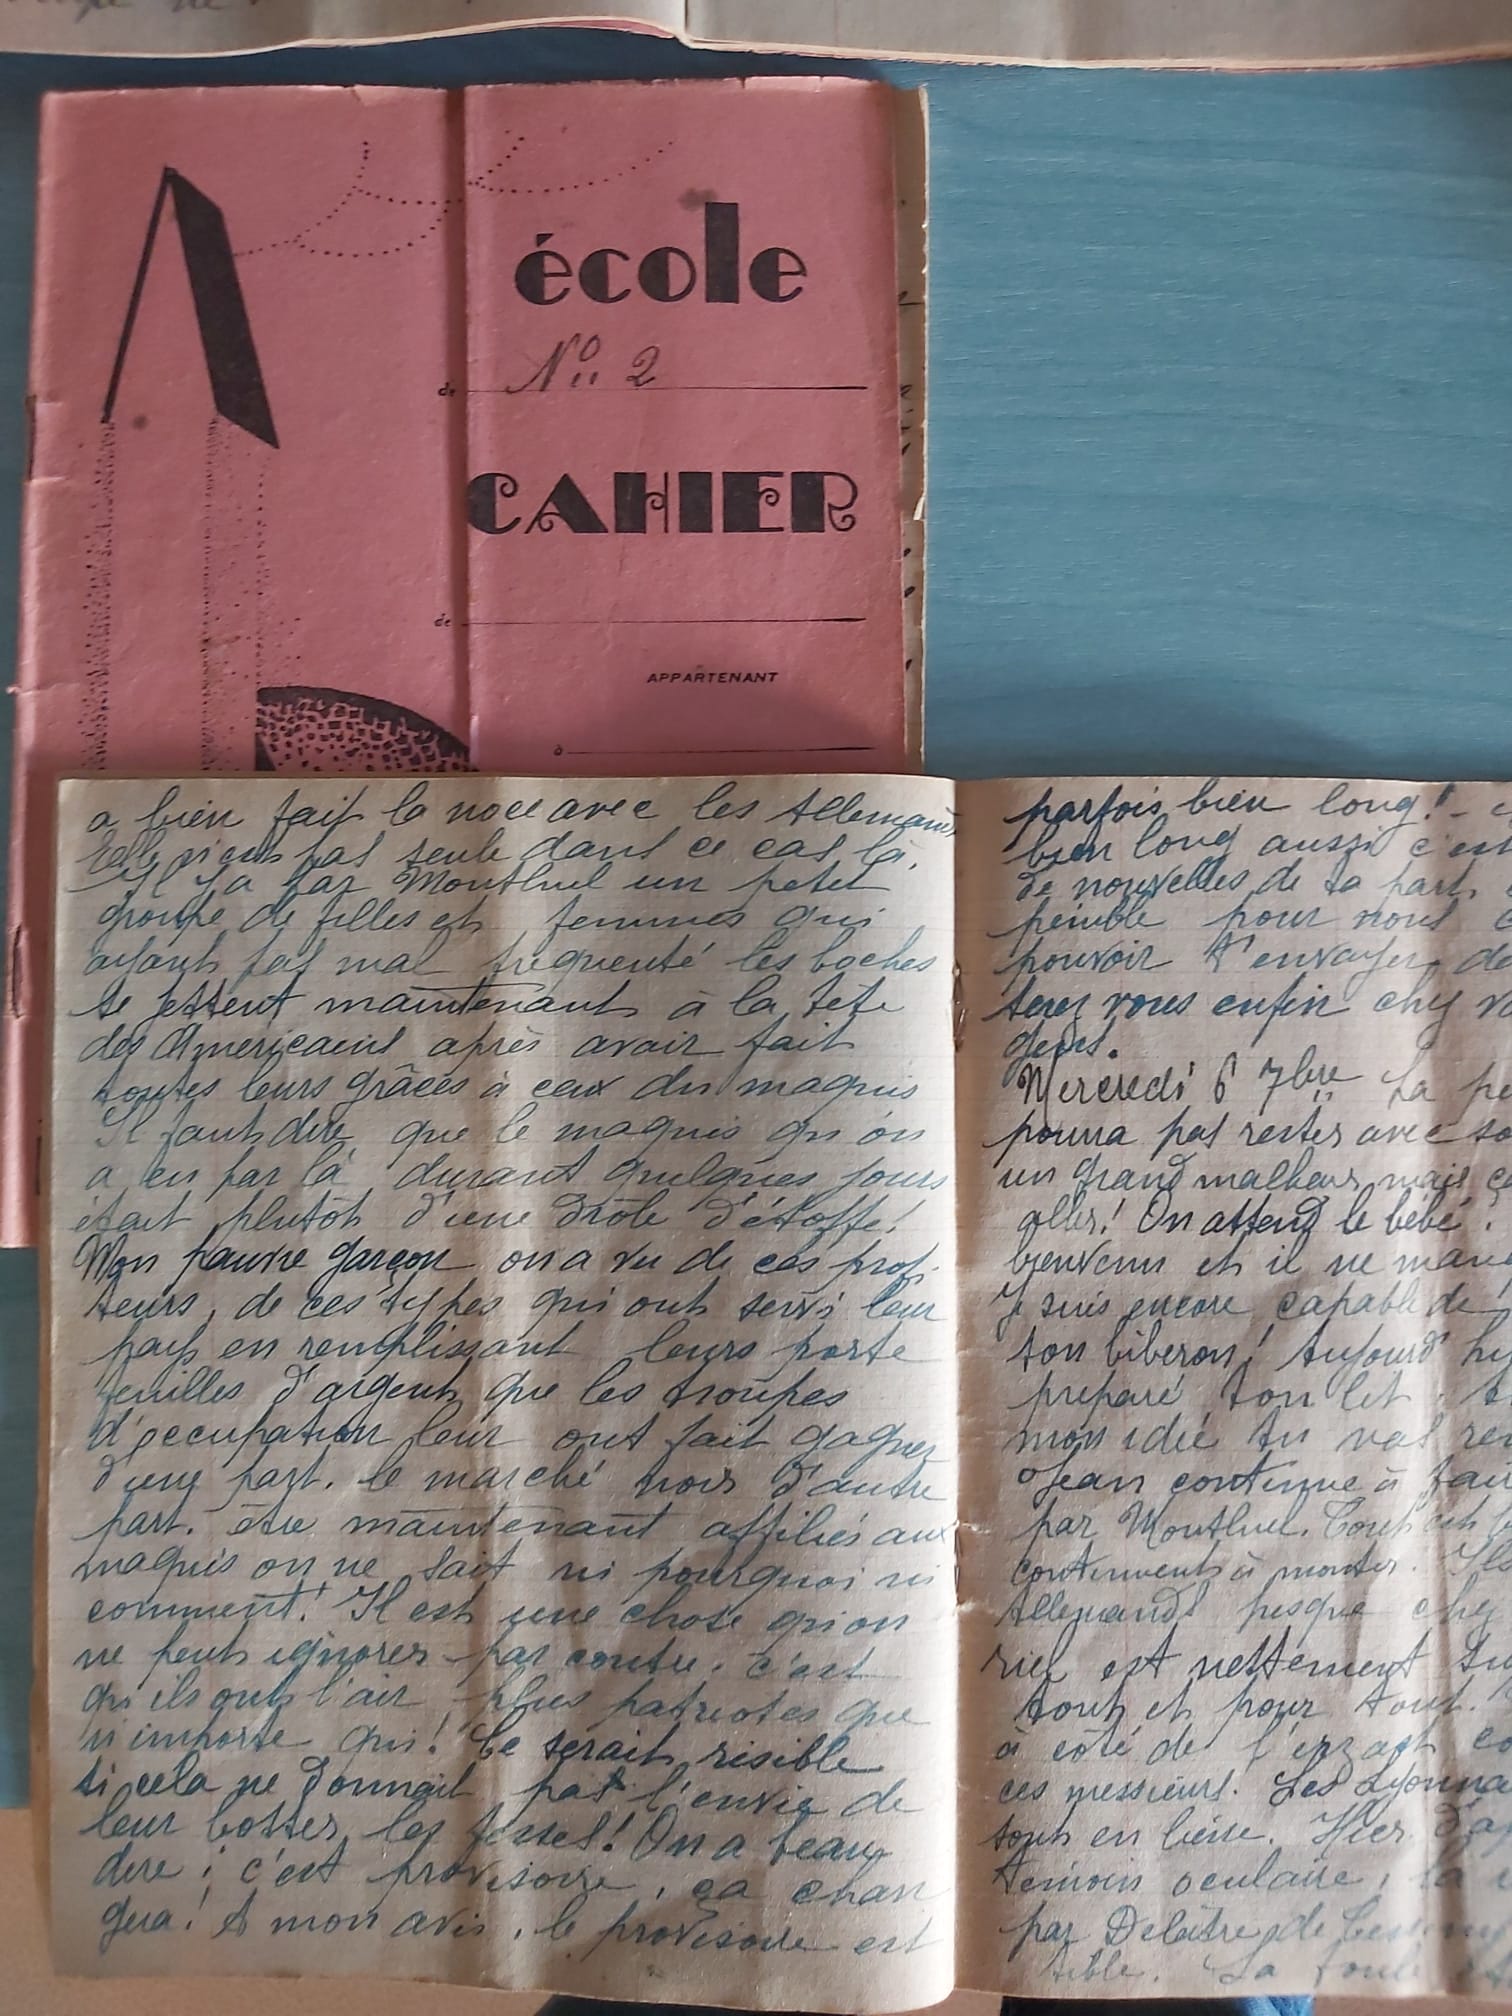 école
de N° 2
CAHIER
de
APPARTENANT
à
a bien fait la noce avec les Allemands
Elle n'est pas seule dans ce cas là.
Il y a par Montluel un petit
groupe de filles et femmes qui
ayant pas mal fréquenté les boches
se jettent maintenant à la tête
des Américains après avoir fait
toutes leurs grâces à ceux du maquis
Il faut dire que le maquis qu'on
a eu par là durant quelques jours
était plutôt d'une drôle d'étoffe!
Mon pauvre garçon on a vu de ces profi
teurs, de ces types qui ont servi leur
pays en remplissant leurs porte
feuilles d'argent que les troupes
d'occupation leur ont fait gagner
d'une part. le marché noir d'autre
part. être maintenant affiliés aux
maquis on ne sait ni pourquoi ni
comment! Il est une chose qu'on
ne peut ignorer par contre. c'est
qu'ils ont l'air plus patriotes que
n'importe qui! Ce serait risible
si cela ne donnait pas l'envie de
leur botter les fesses! On a beau
dire; c'est provisoire, ça chan
gera! A mon avis, le provisoire est
parfois bien long! -
bien long aussi c'est
de nouvelles de ta part
pénible pour nous
pouvoir t'envoyer de
serez vous enfin chez
gens.
Mercredi 6 7bre La
pourra pas rester avec
un grand malheur mais
aller! On attend le bébé!
bienvenu et il ne
Je suis encore capable de
ton biberon! Aujourd'hu
préparé ton lit.
mon idée tu vas
Jean continue à
par Montluel. Tout est
continuent à monter.
Allemands presque chez
riel est nettement
tout et pour tout.
à côté de l'erzact
ces messieurs. Les Lyonna
sont en liesse. Hier
témoin oculaire,
par Delattre de
tible. La foule